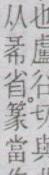 也盧谷切與
从省。篆當